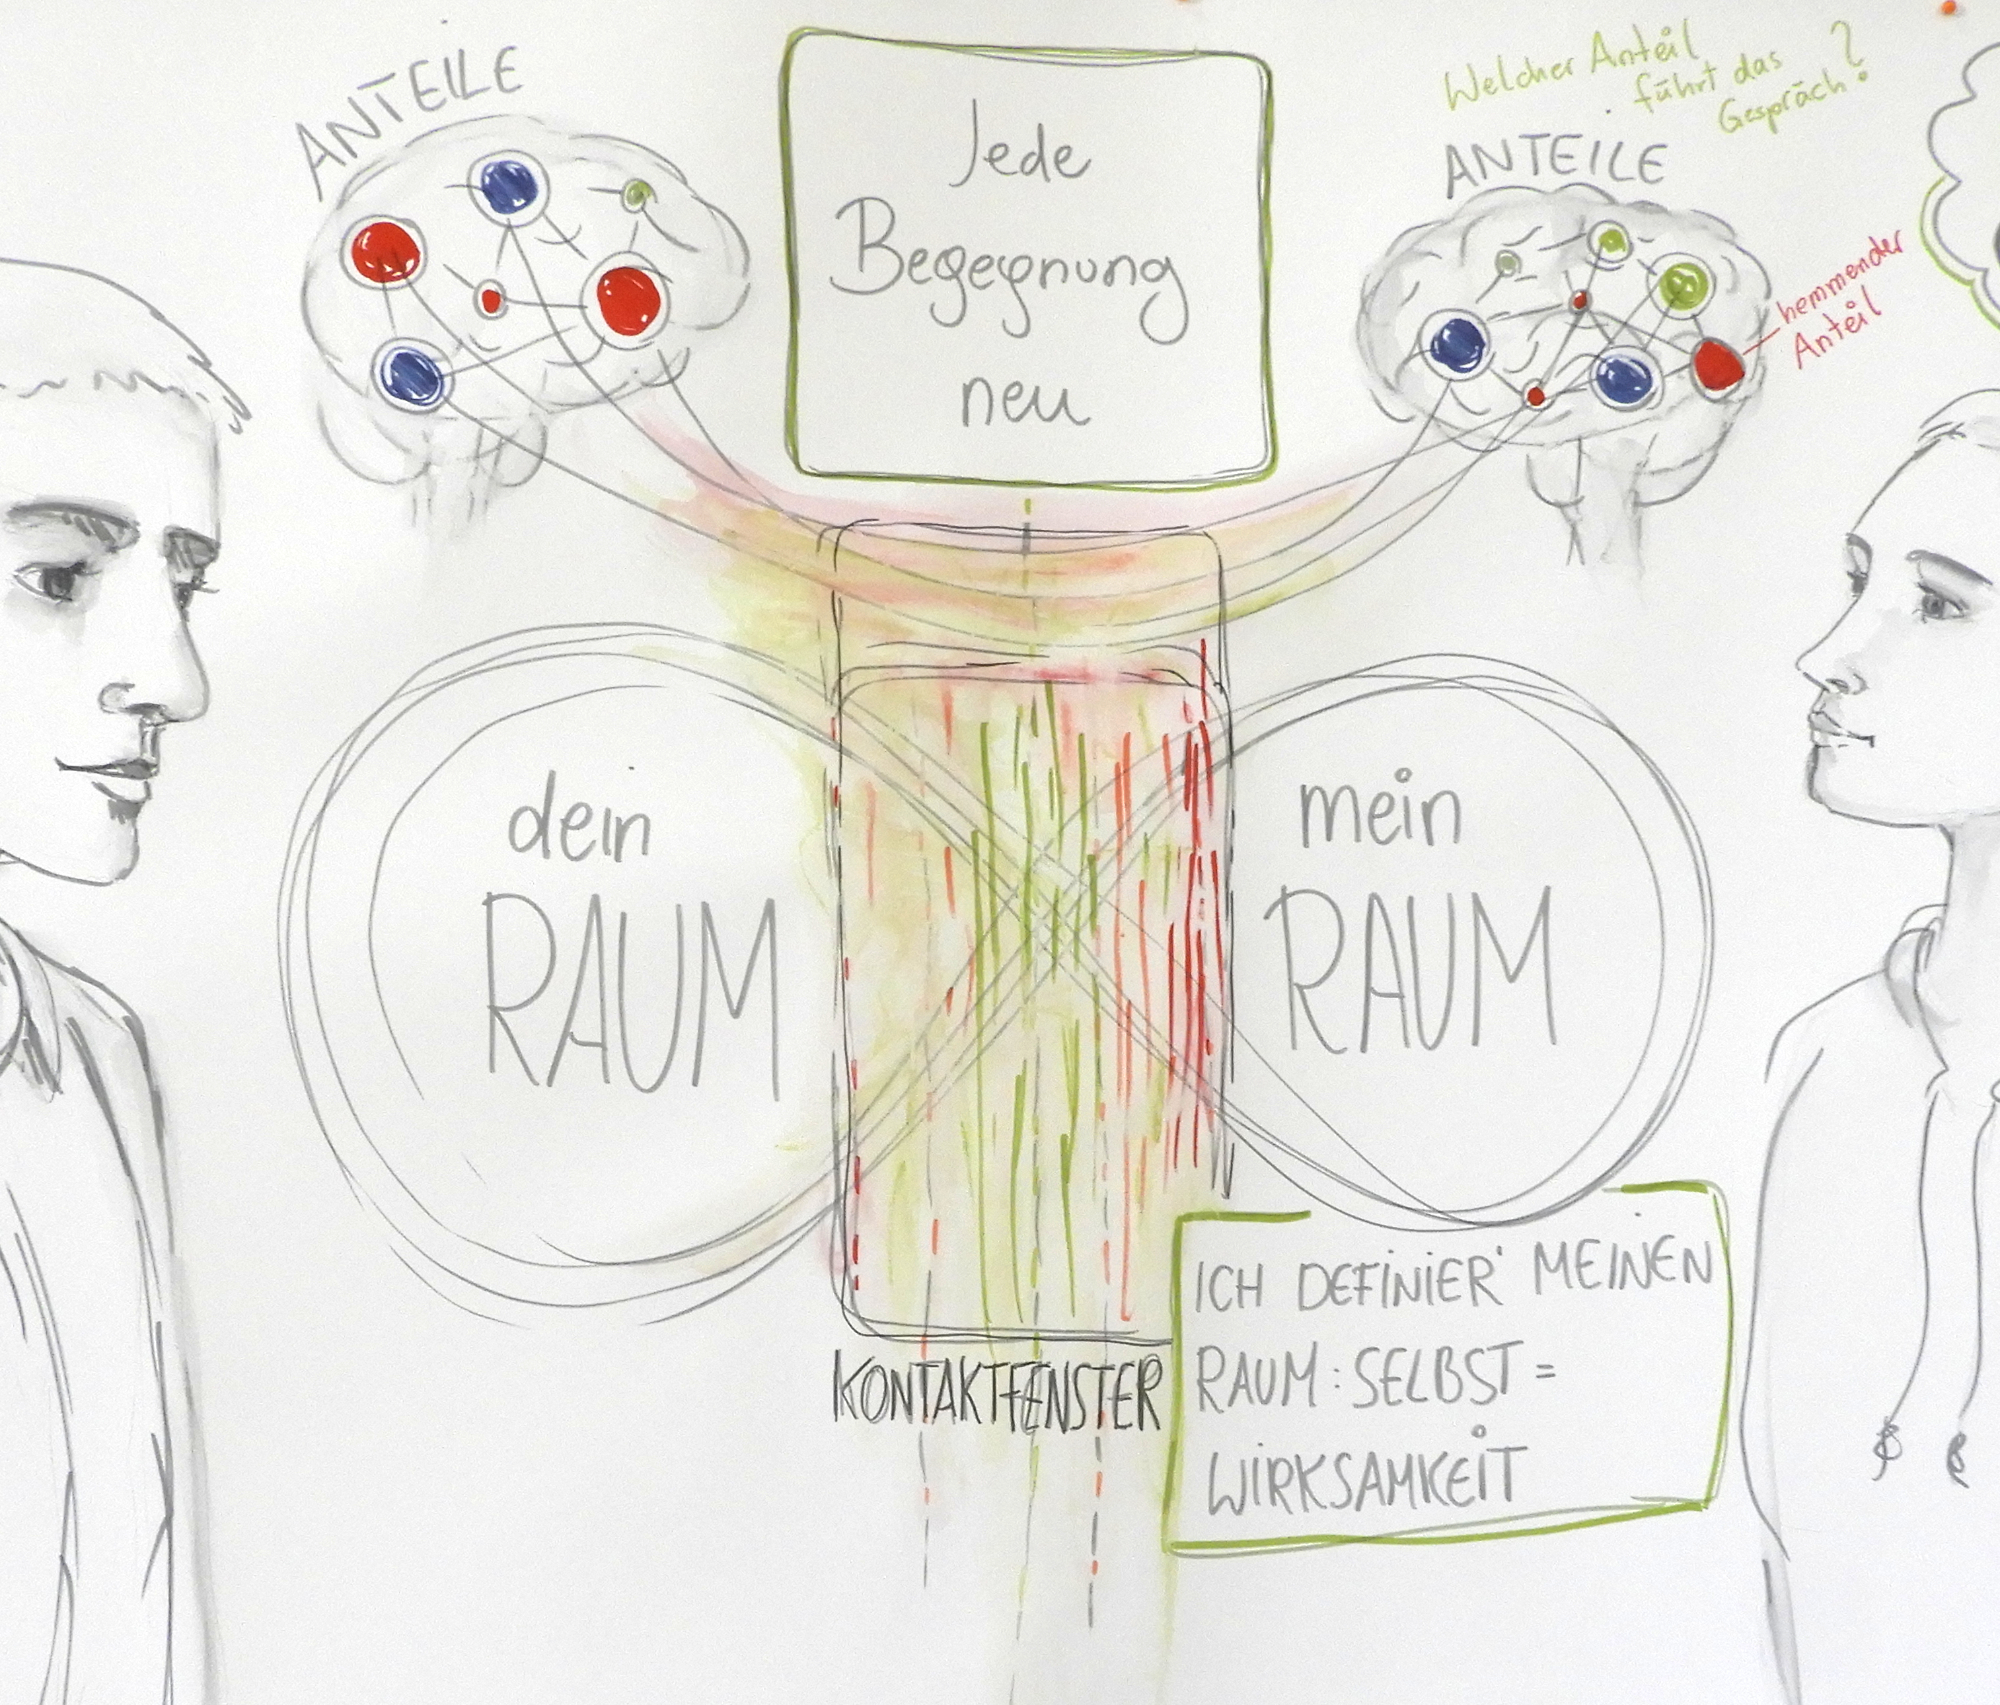 ANTEILE
Jede
Begegnung
neu
Welcher Anteil
führt das
Gespräch?
ANTEILE
hemmender
Anteil
dein
RAUM
mein
RAUM
KONTAKTFENSTER
ICH DEFINIER' MEINEN
RAUM: SELBST=
WIRKSAMKEIT